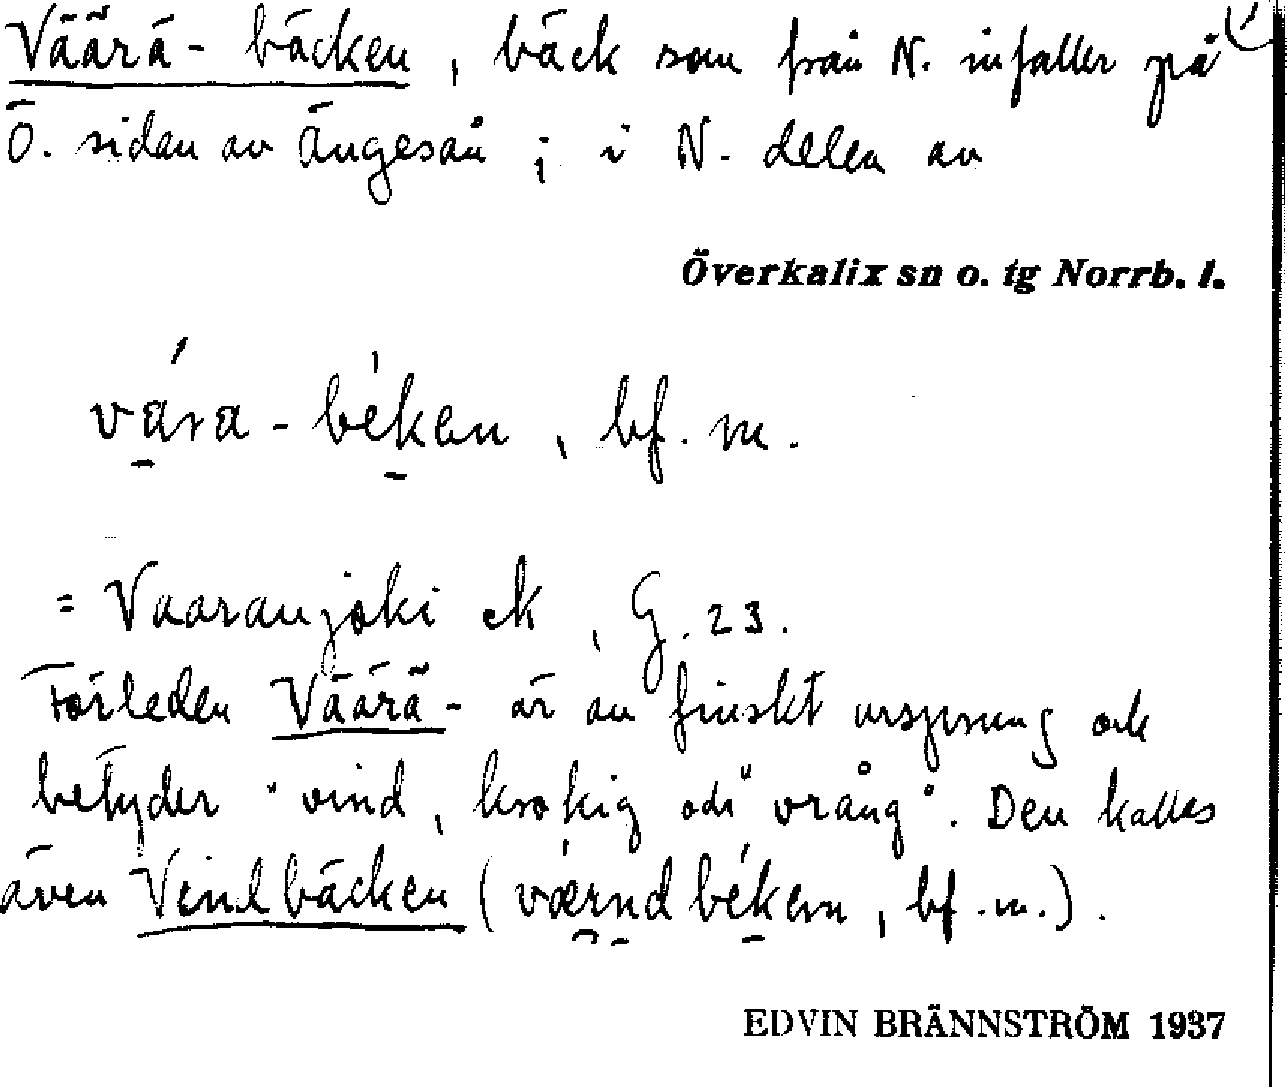 Väärä-bäcken, bäck som från N. infaller på
Ö. sidan av Ängesån; i N. delen av
Överkalix sn o. tg Norrb. l.
vára-béken, bf. m.
= Vaaranjoki ek, G. 23.
Förleden Väärä- är av finskt ursprung och
betyder "vind, krokig och "vrång". Den kallas
även Vindbäcken (værndbéken, bf. m.).
EDVIN BRÄNNSTRÖM 1937